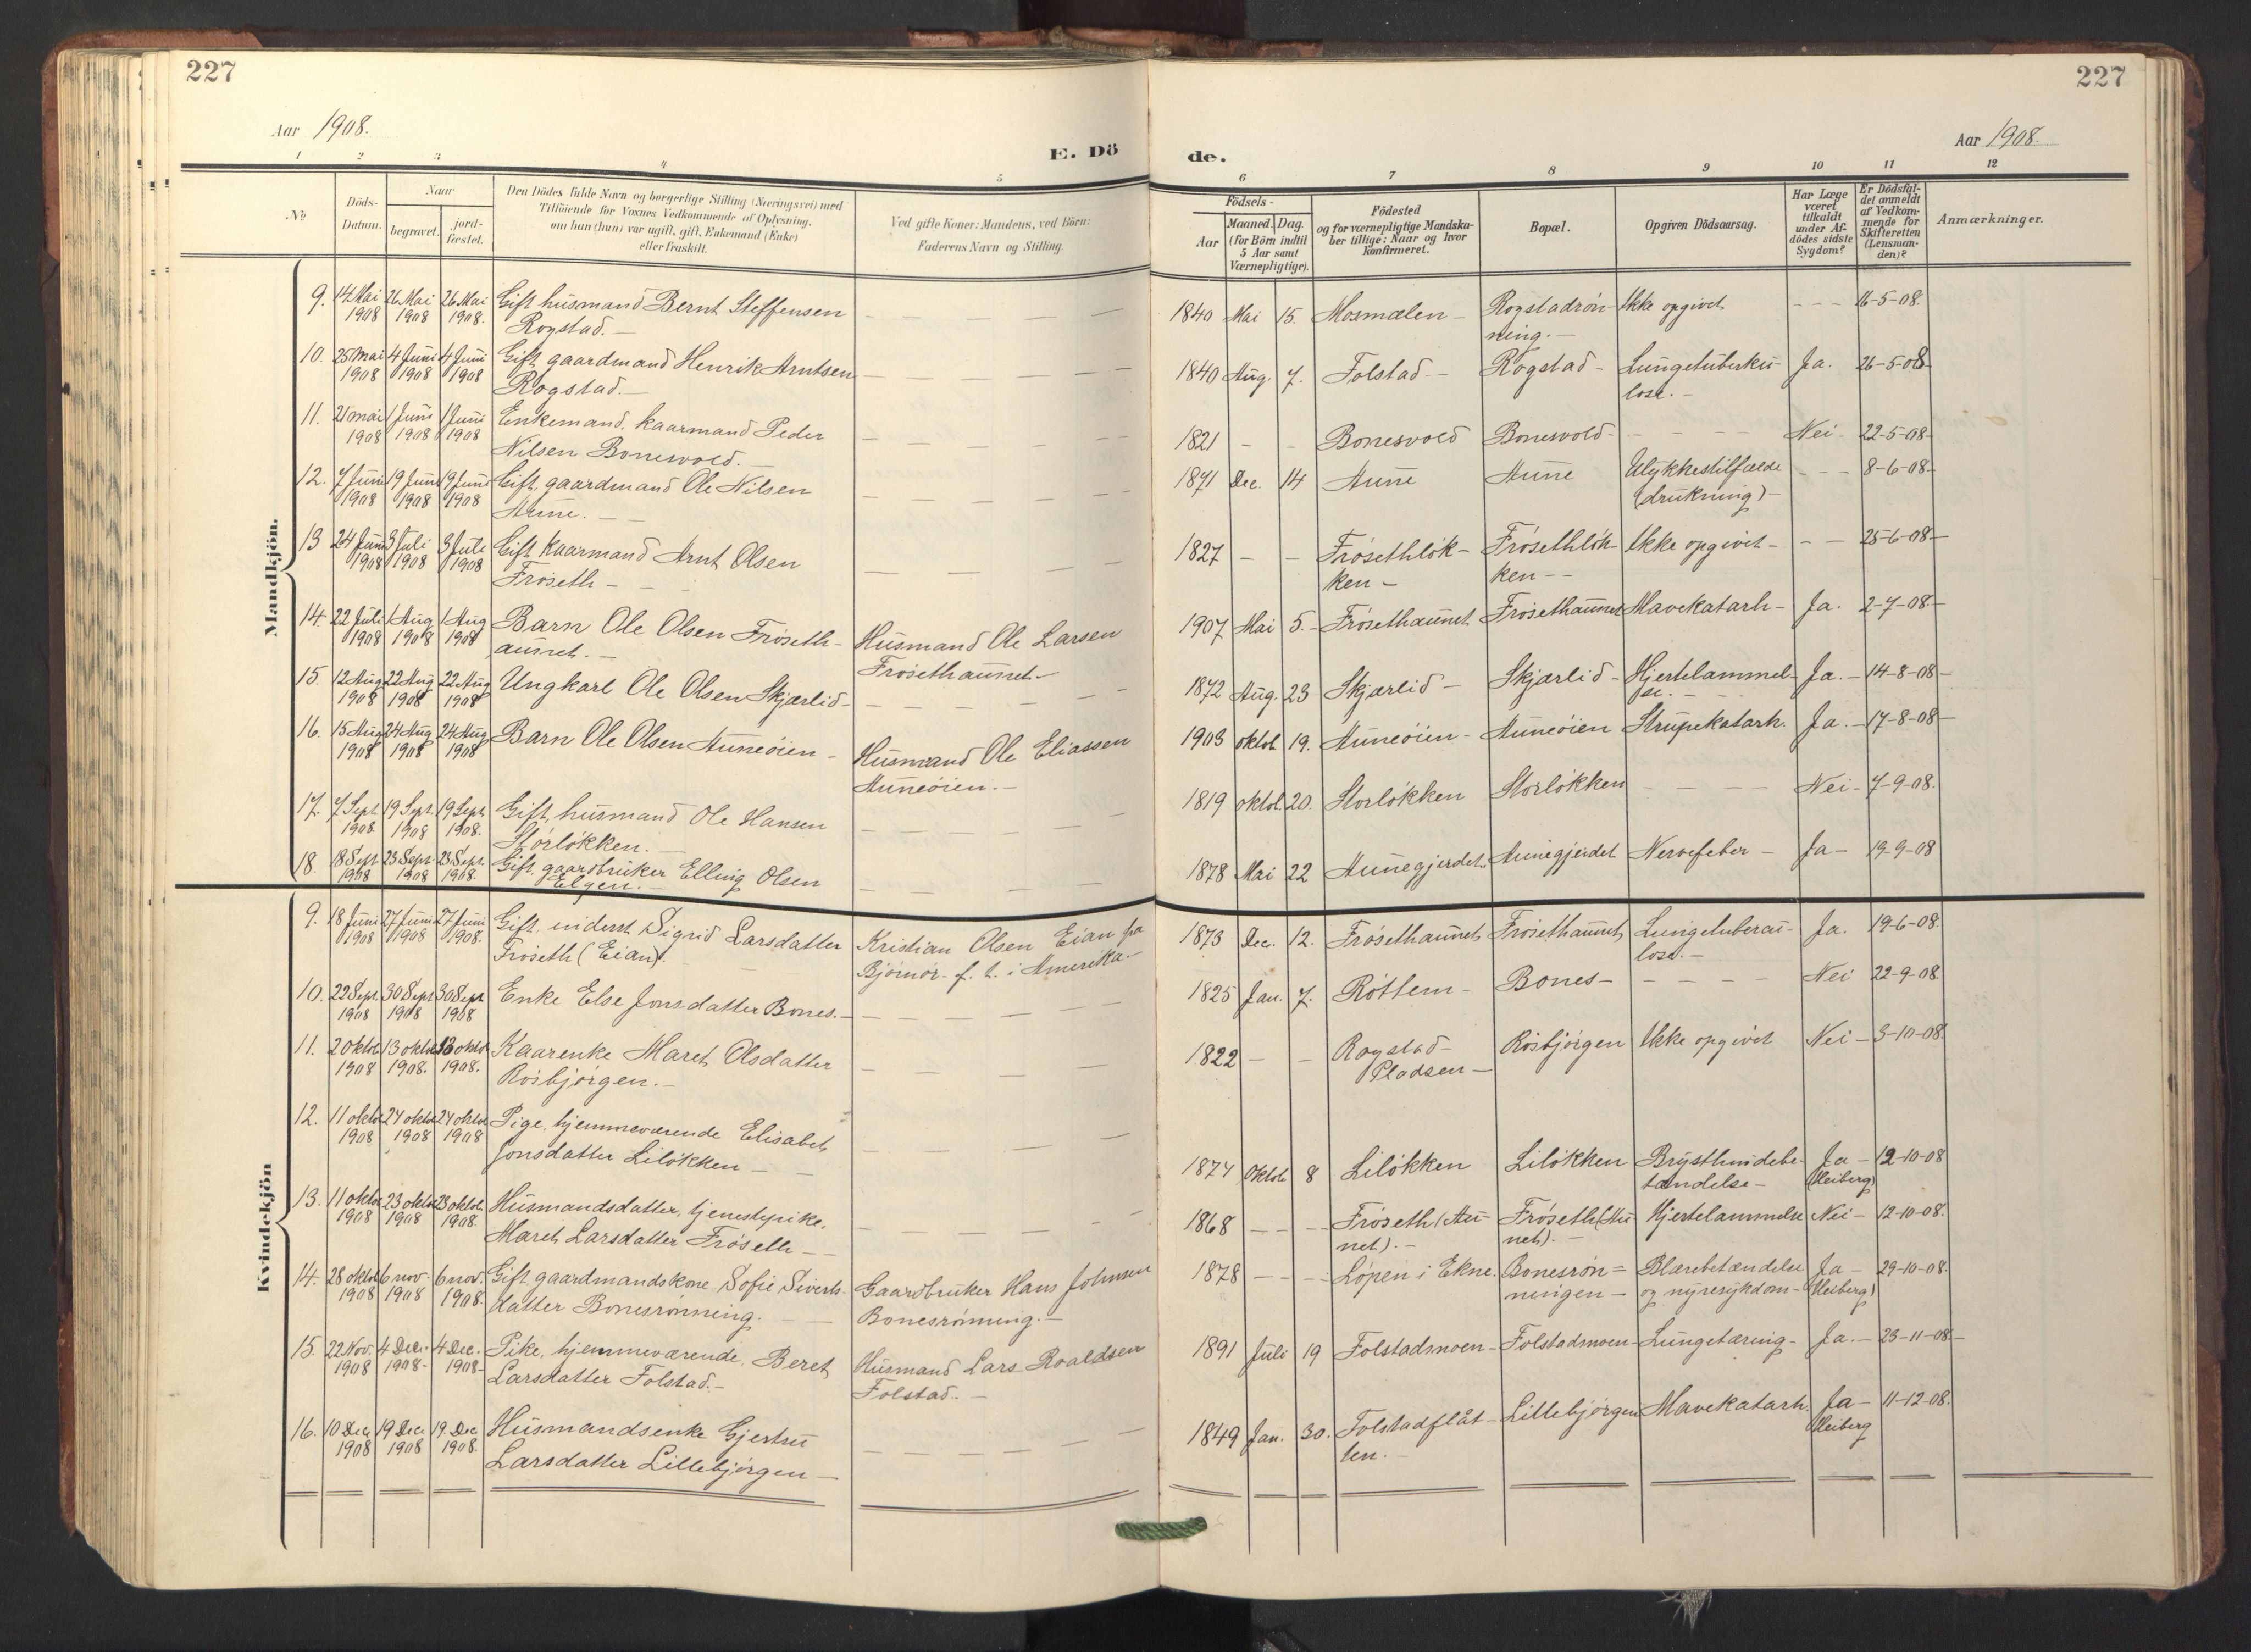 227
227
Aar 1908.
E. Dö
de.
Aar 1908.
1 2 3 4 5
6 7 8 9 10 11 12
№
Döds-
Datum.
Naar
begravet.
jord-
fæstet.
Den Dödes fulde Navn og borgerlige Stilling (Næringsvei) med
Tilföiende for Voxnes Vedkommende af Oplysning,
om han (hun) var ugift, gift, Enkemand (Enke)
eller fraskilt.
Ved gifte Koner: Mandens, ved Börn:
Faderens Navn og Stilling.
Födsels-
Aar
Maaned. Dag.
(for Börn indtil
5 Aar samt
Værnepligtige).
Födested
og for værnepligtige Mandska-
ber tillige: Naar og hvor
konfirmeret.
Bopæl.
Opgiven Dödsaarsag.
Har Læge
været
tilkaldt
under Af-
dödes sidste
Sygdom?
Er Dödsfal-
det anmeldt
af Vedkom-
mende for
Skifteretten
(Lensman-
den)?
Anmærkninger.
Mandkjön.
9. 14 Mai 26 Mai 26 Mai Gift husmand Bernt Steffensen — 1840 Mai 15. Mosmælen - Rogstadrön- Ikke opgivet - - - 16-5-08.
1908 1908 1908. Rogstad. — ning. -
10. 25 Mai 4 Juni 4 Juni Gift gaardmand Henrik Arntsen — 1840 Aug. 7. Folstad - Rogstad - Lungetuberku- Ja. 26-5-08
1908 1908 1908 Rogstad. — lose. -
11. 21 mai 1 Juni 1 Juni Enkemand, kaarmand Peder — 1821 - - Bonesvold Bonesvold - - - - Nei - 22-5-08-
1908 1908 1908 Nilsen Bonesvold. —
12. 7 Juni 19 Juni 19 Juni Gift, gaardmand Ole Nilsen — 1871 Dec. 14 Aune Aune Ulykkestilfælde - - 8-6-08-
1908 1908 1908 Aune. - (drukning) -
13 24 Juni 3 Juli 3 Juli Gift Kaarmand Arnt Olsen — 1827 - - Frösethlök- Frösethlök- Ikke opgivet - - - 25-6-08-
1908 1908 1908 Fröseth - ken - ken - -
14. 22 Juli 1 Aug 1 Aug Barn Ole Olsen Fröseth- Husmand Ole Larsen 1907 Mai 5. - Frösethaunet Frösethaunet Mavekatarh - Ja. 2-7-08-
1908 1908 1908 aunet. - Frösethaunet. -
15. 12 Aug 22 Aug 22 Aug Ungkarl Ole Olsen Skjærlid - — 1872 Aug. 23 Skjærlid - Skjærlid - Hjertelammel- Ja. - 14-8-08-
1908 1908 1908 se. -
16. 15 Aug 24 Aug 24 Aug Barn Ole Olsen Auneöien - Husmand Ole Eliassen 1903 oktob. 19. Auneöien - Auneöien Strupekatarh. Ja. - 17-8-08-
1908 1908 1908 Auneöien. -
17. 7 Sept. 19 Sept. 19 Sept. Gift, husmand Ole Hansen — 1819 oktob. 20. Storlökken Storlökken - - - Nei - 7-9-08.
1908. 1908 1908. Storlökken. -
18. 18 Sept. 23 Sept. 23 Sept. Gift, gaardbruker Elling Olsen — 1878 Mai 22 Aunegjerdet. Aunegjerdet Nervefeber - Ja - 19-9-08
1908 1908 1908. Elgen. -
Kvindekjön
9. 18 Juni 27 Juni 27 Juni Gift, inderst Sigrid Larsdatter Kristian Olsen Eian fra 1873 Dec. 12. Frösethaunet Frösethaunet Lungetubercu- Ja. 19-6-08.
1908 1908 1908. Fröseth (Eian). Björnör - f. t. i Amerika. - lose. -
10. 22 Sept. 30 Sept 30 Sept Enke Else Jonsdatter Bones. - — 1825 Jan. 7. Röttem - Bones - - - - Nei 22-9-08.
1908 1908 1908
11. 2 oktob. 13 oktob 13 oktob Kaarenke Maret Olsdatter — 1822 - - Rogstad- Rösbjörgen Ikke opgivet Nei - 3-10-08.
1908 1908. 1908. Rösbjörgen. - Pladsen -
12. 11 oktob 24 oktob 24 oktob Pige, hjemmeværende Elisabet — 1874 Oktob. 8 Lilökken Lilökken Brysthindebe- Ja - 12-10-08
1908 1908 1908 Jonsdatter Lilökken - tændelse - (Heiberg)
13. 11 oktob 23 oktob 23 oktob. Husmandsdatter, tjenestepike, — 1868 - - - Fröseth (Au- Fröseth (Au- Hjertelammelse Nei - 12-10-08.
1908 1908 1908. Maret Larsdatter Fröseth - - net). - net). -
14. 28 oktob 6 nov. 6 nov. Gift, gaardmandskone Sofie Siverts- Gaardbruker Hans Johnsen 1878 - - - Löpen i Ekne. Bonesrön= Blærebetændelse Ja - 29-10-08.
1908 1908 1908. datter Bonesrönning. - Bonesrönning. - ningen - og nyresykdom - (Heiberg)
15. 22 Nov. 4 Dec. 4 Dec. Pike, hjemmeværende, Beret Husmand Lars Roaldsen 1891 Juli 19 Folstadmoen - Folstadmoen - Lungetæring - Ja. - 23-11-08-
1908 1908 - 1908 - Larsdatter Folstad. - Folstad. -
16. 10 Dec. 19 Dec 19 Dec Husmandsenke Gjertru — 1849 Jan. 30. Folstadflåt- Lillebjörgen Mavekatarh. Ja - 11-12-08.
1908 1908 1908. Larsdatter Lillebjörgen - ten. - Heiberg